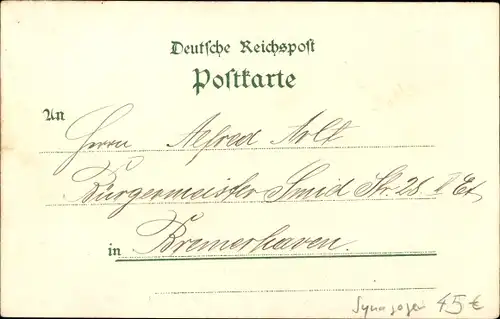 Deutsche Reichspost
Postkarte
An
Herrn Alfred Arlt
Bürgermeister Smid Str. 28 II Et.
in Bremerhaven.
Synagogen 45 €